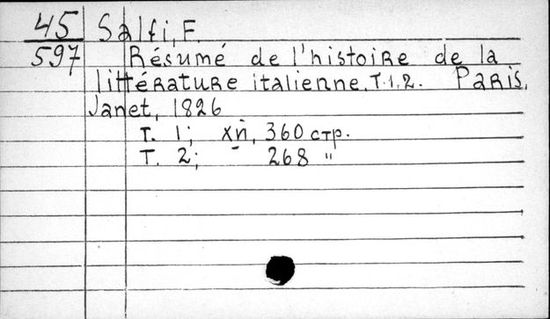 45 Salfi, F.
597 Résumé de l'histoire de la
littérature italienne. T.1.2. Paris,
Janet, 1826
T. 1; XII, 360 стр.
T. 2; - 268 "